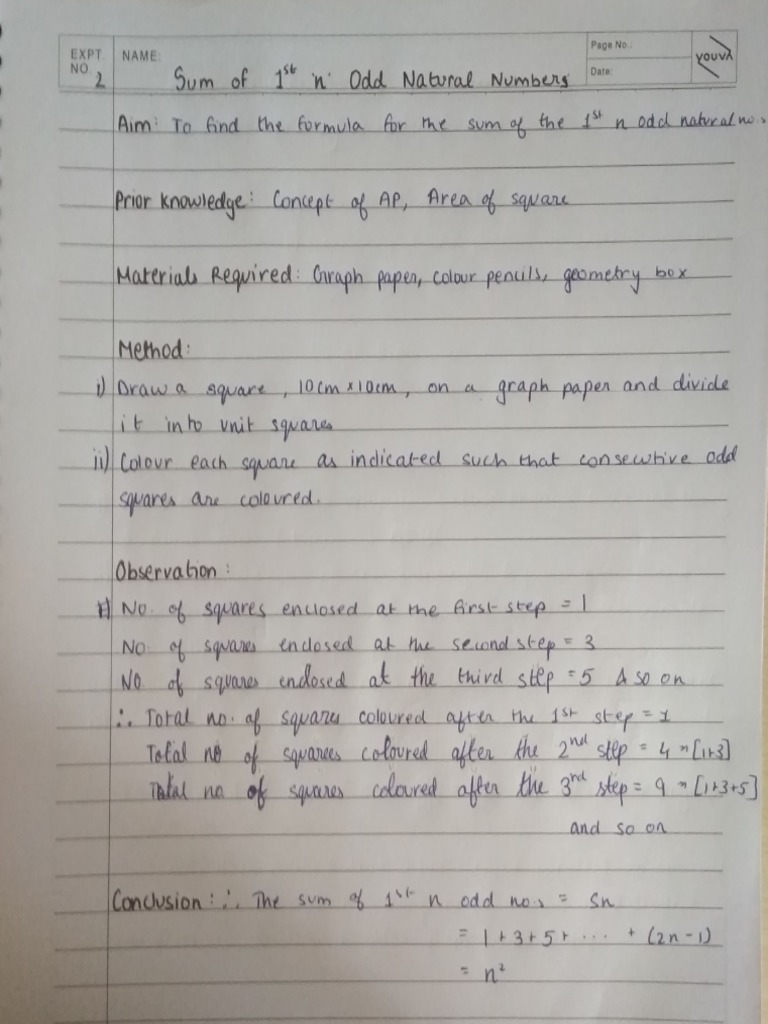 EXPT. NO. 2
NAME:
Page No.:
Date:
YOUVA
Sum of 1st 'n' Odd Natural Numbers
Aim: To find the formula for the sum of the 1st n odd natural no.s
Prior Knowledge: Concept of AP, Area of square
Materials Required: Graph paper, colour pencils, geometry box
Method:
i) Draw a square, 10cm x 10cm, on a graph paper and divide
it into unit squares
ii) Colour each square as indicated such that consecutive odd
squares are coloured.
Observation:
No. of squares enclosed at the first step = 1
No. of squares enclosed at the second step = 3
No. of squares enclosed at the third step = 5 & so on
∴ Total no. of squares coloured after the 1st step = 1
Total no of squares coloured after the 2nd step = 4 → [1+3]
Total no of squares coloured after the 3rd step = 9 → [1+3+5]
and so on
Conclusion: ∴ The sum of 1st n odd no.s = Sn
= 1 + 3 + 5 + ... + (2n-1)
= n²